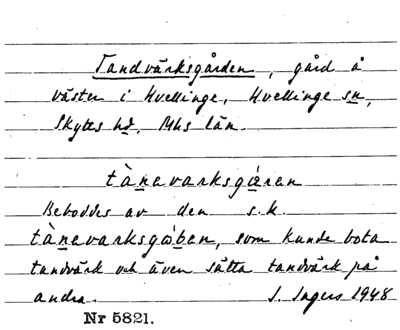 Tandvärksgården, gård å
väster i Hvellinge, Hvellinge sn,
Skytts hd, Mhs län.
tànevarksgǽren
Beboddes av den s.k.
tànevarksgóben, som kunde bota
tandvärk och även sätta tandvärk på
andra. I. Ingers 1948
Nr 5821.